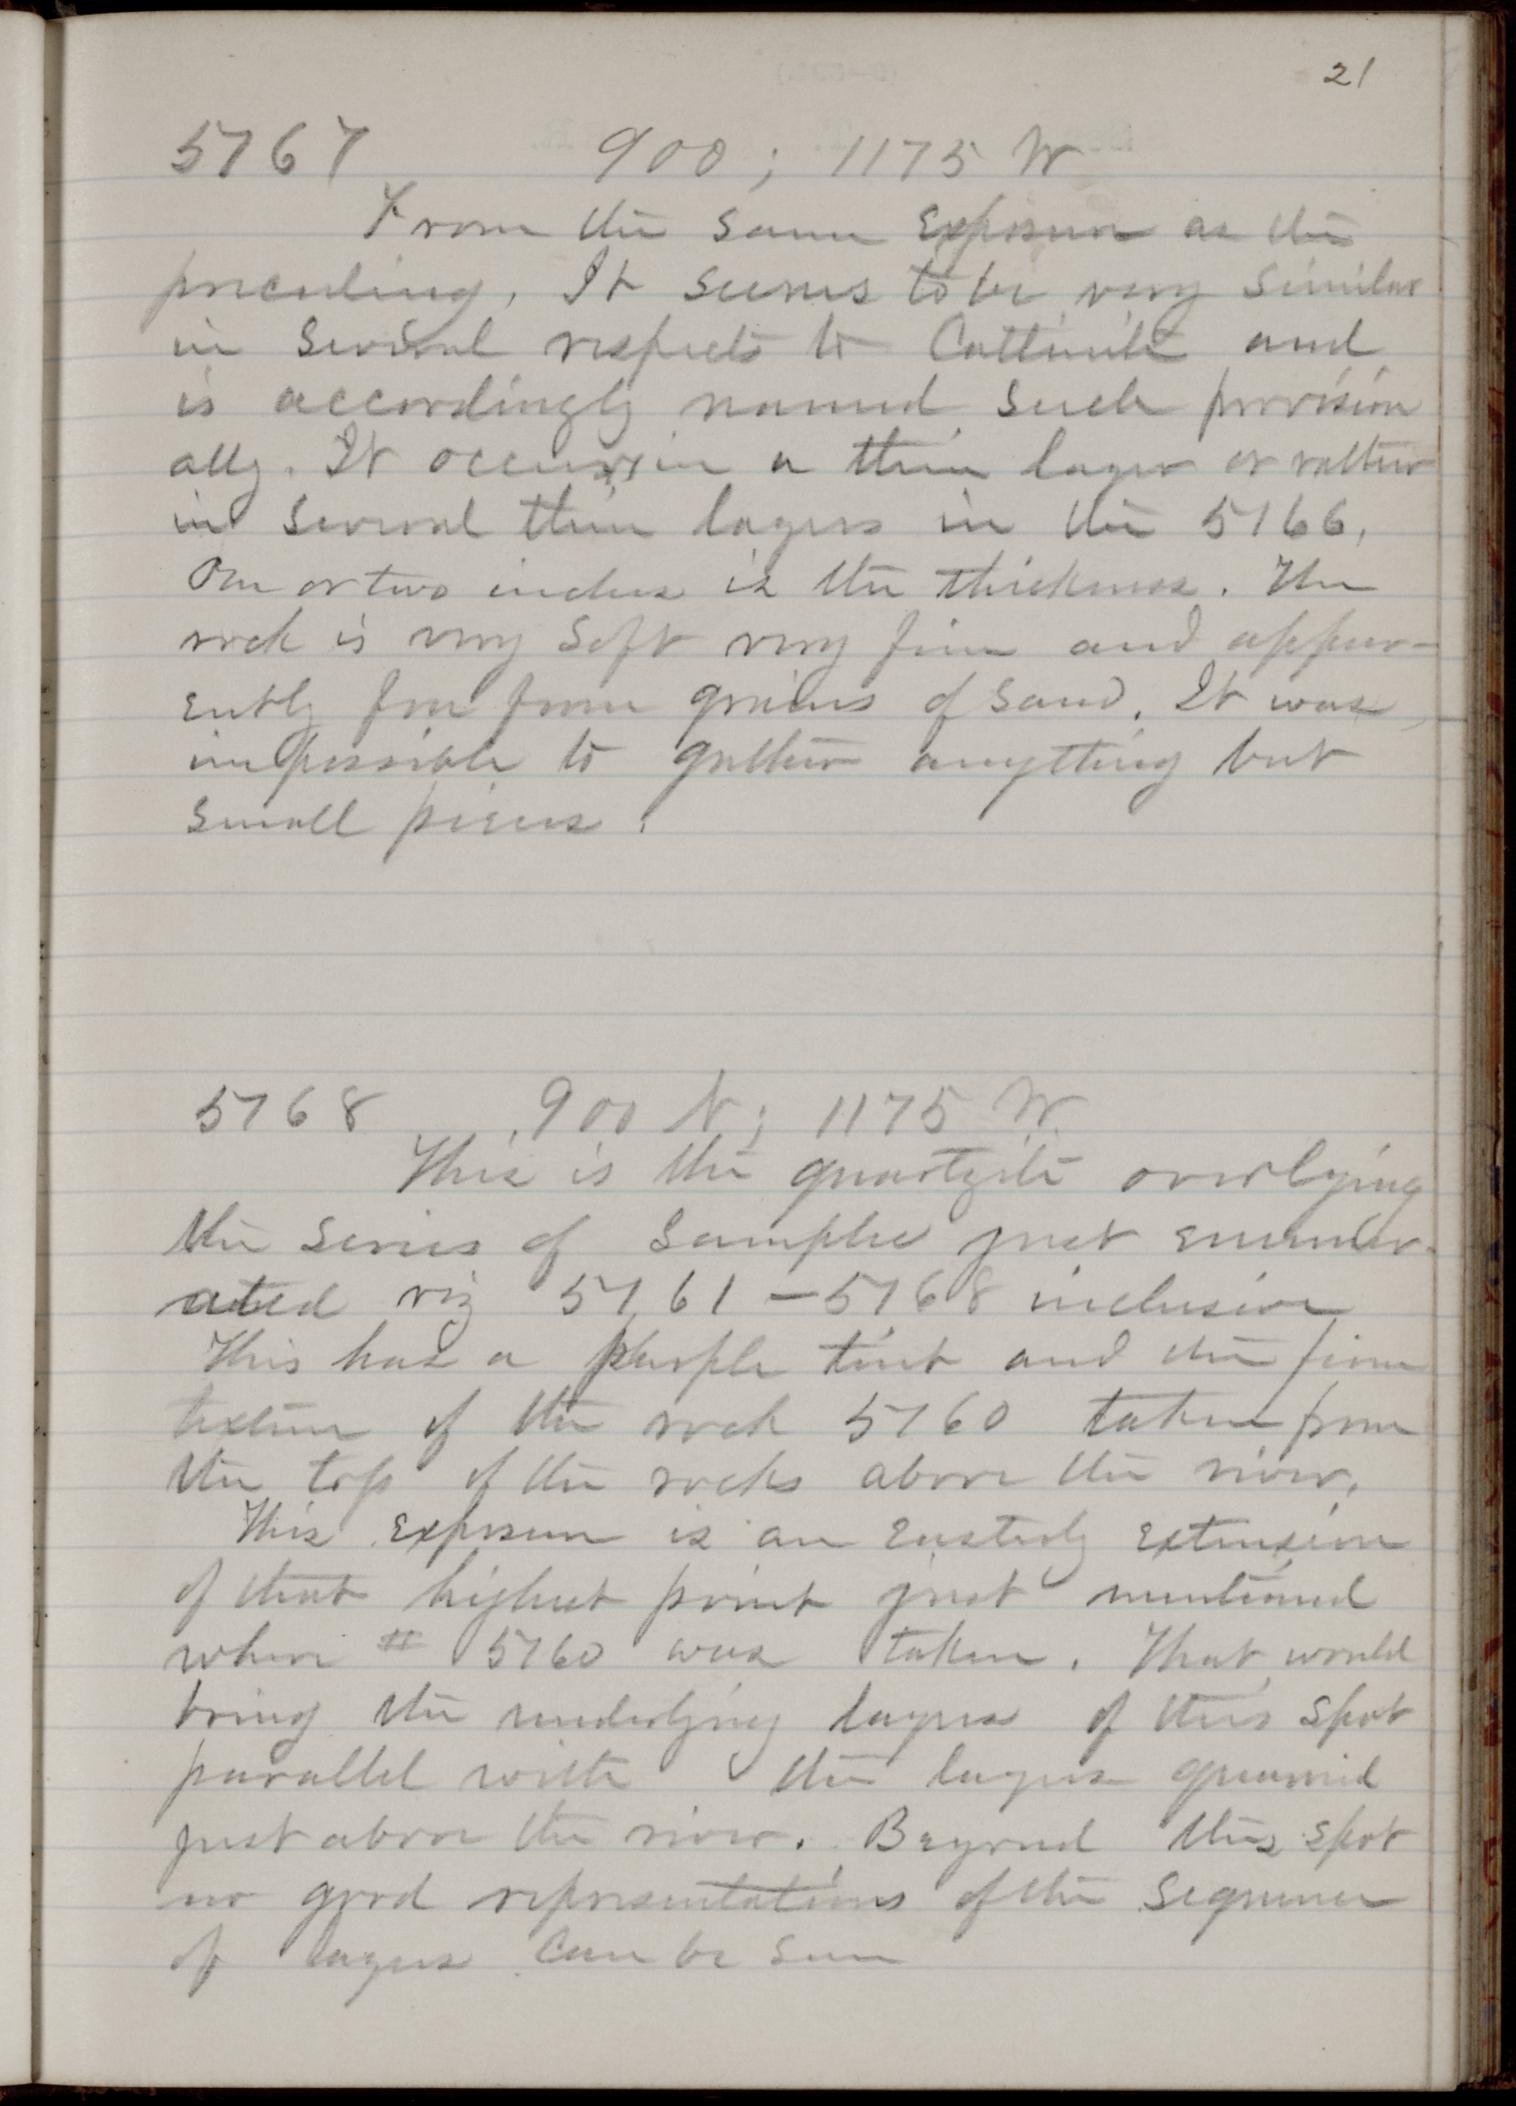 21
5767 900; 1175 W
From the same exposure as the
preceding. It seems to be very similar
in several respects to Catlinite and
is accordingly named such provision
ally. It occurs in a thin layer or rather
in several thin layers in the 5766.
One or two inches is the thickness. The
rock is very soft very fine and appar-
ently free from grains of sand. It was
impossible to gather anything but
small pieces.
5768 900 N; 1175 W.
This is the quartzite overlying
the series of samples just enumer-
ated viz 5761 - 5768 inclusive
This has a purple tint and the fine
texture of the rock 5760 taken from
the top of the rocks above the river.
This exposure is an easterly extension
of that highest point just mentioned
where # 5760 was taken. That would
bring the underlying layers of this spot
parallel with the layers
just above the river. Beyond this spot
no good representations of the sequence
of layers can be seen